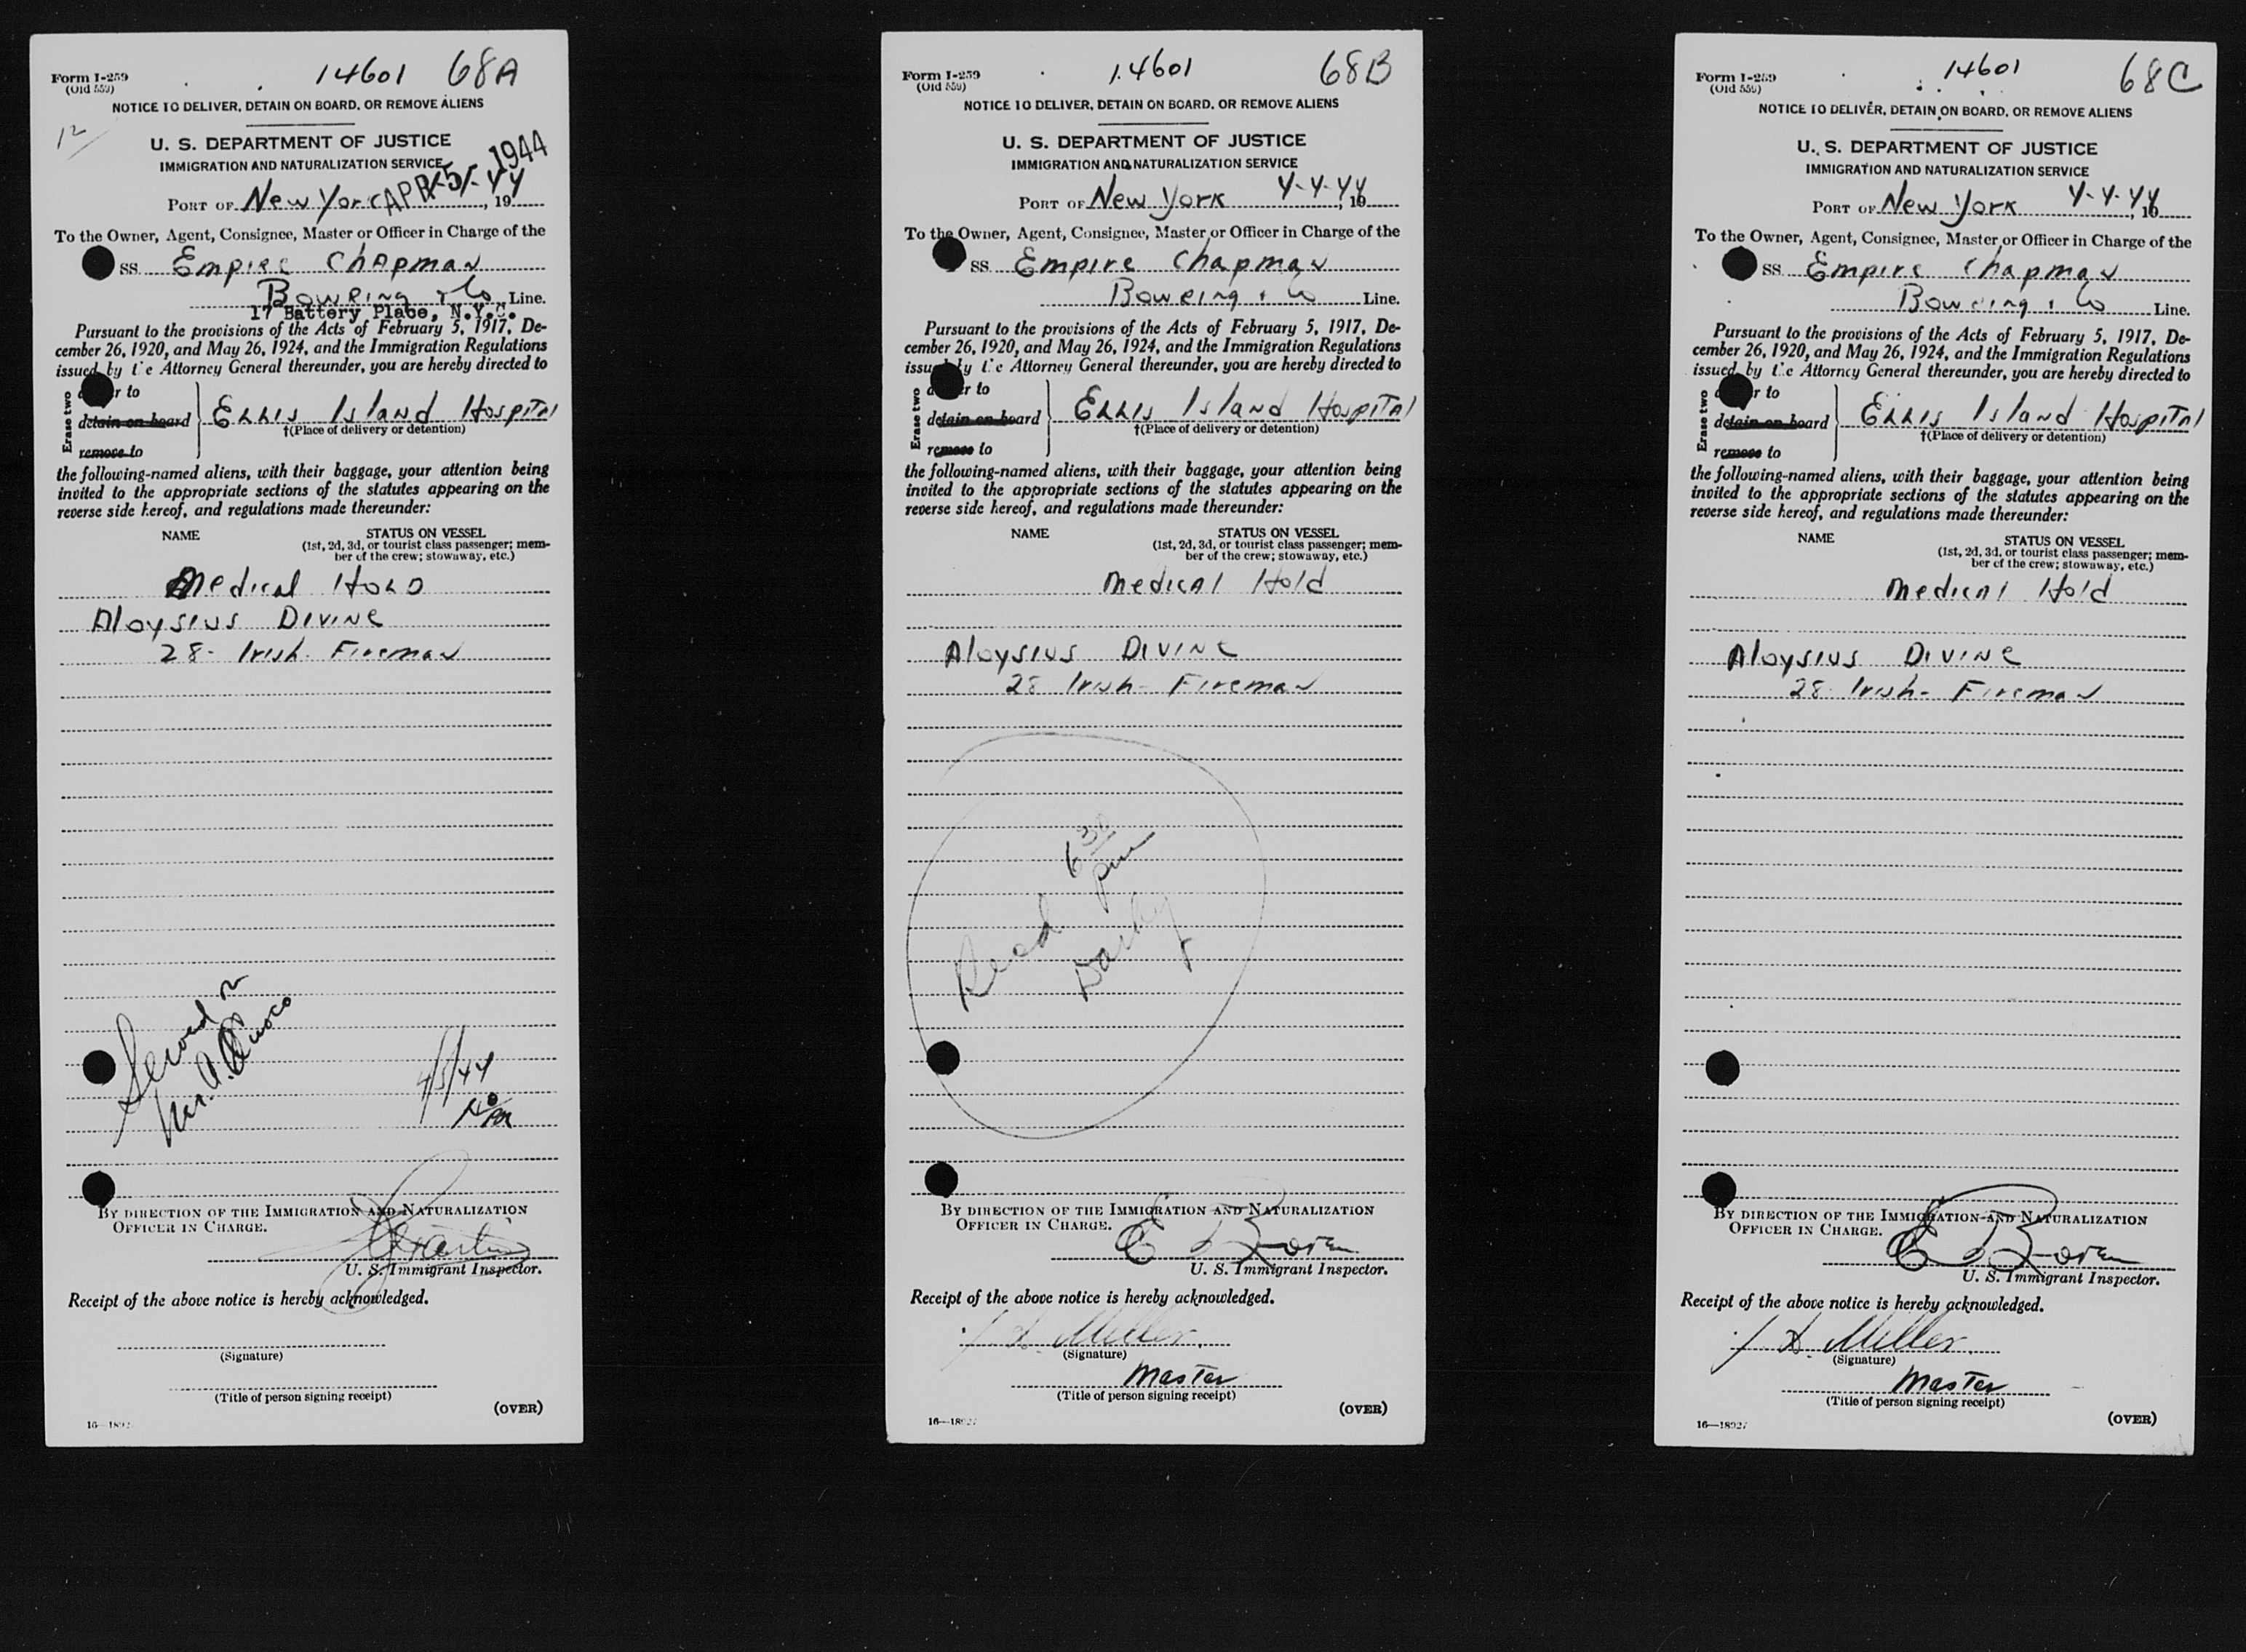 14601 68A
Form I-259
(Old 559)
NOTICE TO DELIVER, DETAIN ON BOARD, OR REMOVE ALIENS
12
U. S. DEPARTMENT OF JUSTICE
IMMIGRATION AND NATURALIZATION SERVICE
APR -5 1944
PORT OF New York 4-5-44, 19
To the Owner, Agent, Consignee, Master or Officer in Charge of the
SS. Empire Chapman
Bowring & Co Line.
17 Battery Place, N.Y.C.
Pursuant to the provisions of the Acts of February 5, 1917, De-
cember 26, 1920, and May 26, 1924, and the Immigration Regulations
issued by the Attorney General thereunder, you are hereby directed to
r to
Erase two
detain on board Ellis Island Hospital
†(Place of delivery or detention)
remove to
the following-named aliens, with their baggage, your attention being
invited to the appropriate sections of the statutes appearing on the
reverse side hereof, and regulations made thereunder:
NAME STATUS ON VESSEL
(1st, 2d, 3d, or tourist class passenger; mem-
ber of the crew; stowaway, etc.)
Medical Hold
Aloysius Divine
28- Irish- Fireman
Served
Mr. A. Cuoco
4/5/44
BY DIRECTION OF THE IMMIGRATION AND NATURALIZATION
OFFICER IN CHARGE.
U. S. Immigrant Inspector.
Receipt of the above notice is hereby acknowledged.
(Signature)
(Title of person signing receipt)
(OVER)
14601 68B
Form I-259
(Old 559)
NOTICE TO DELIVER, DETAIN ON BOARD, OR REMOVE ALIENS
U. S. DEPARTMENT OF JUSTICE
IMMIGRATION AND NATURALIZATION SERVICE
PORT OF New York 4-4-44, 19
To the Owner, Agent, Consignee, Master or Officer in Charge of the
SS. Empire Chapman
Bowring & Co Line.
Pursuant to the provisions of the Acts of February 5, 1917, De-
cember 26, 1920, and May 26, 1924, and the Immigration Regulations
issued by the Attorney General thereunder, you are hereby directed to
r to
Erase two
detain on board Ellis Island Hospital
†(Place of delivery or detention)
remove to
the following-named aliens, with their baggage, your attention being
invited to the appropriate sections of the statutes appearing on the
reverse side hereof, and regulations made thereunder:
NAME STATUS ON VESSEL
(1st, 2d, 3d, or tourist class passenger; mem-
ber of the crew; stowaway, etc.)
Medical Hold
Aloysius Divine
28 Irish- Fireman
Recd 6 30 pm
Darby
BY DIRECTION OF THE IMMIGRATION AND NATURALIZATION
OFFICER IN CHARGE.
U. S. Immigrant Inspector.
Receipt of the above notice is hereby acknowledged.
Miller
(Signature)
Master
(Title of person signing receipt)
(OVER)
14601 68C
Form I-259
(Old 559)
NOTICE TO DELIVER, DETAIN ON BOARD, OR REMOVE ALIENS
U. S. DEPARTMENT OF JUSTICE
IMMIGRATION AND NATURALIZATION SERVICE
PORT OF New York 4-4-44, 19
To the Owner, Agent, Consignee, Master or Officer in Charge of the
SS. Empire Chapman
Bowring & Co Line.
Pursuant to the provisions of the Acts of February 5, 1917, De-
cember 26, 1920, and May 26, 1924, and the Immigration Regulations
issued by the Attorney General thereunder, you are hereby directed to
r to
Erase two
detain on board Ellis Island Hospital
†(Place of delivery or detention)
remove to
the following-named aliens, with their baggage, your attention being
invited to the appropriate sections of the statutes appearing on the
reverse side hereof, and regulations made thereunder:
NAME STATUS ON VESSEL
(1st, 2d, 3d, or tourist class passenger; mem-
ber of the crew; stowaway, etc.)
Medical Hold
Aloysius Divine
28 Irish- Fireman
BY DIRECTION OF THE IMMIGRATION AND NATURALIZATION
OFFICER IN CHARGE.
U. S. Immigrant Inspector.
Receipt of the above notice is hereby acknowledged.
Miller
(Signature)
Master
(Title of person signing receipt)
16—18927 (OVER)